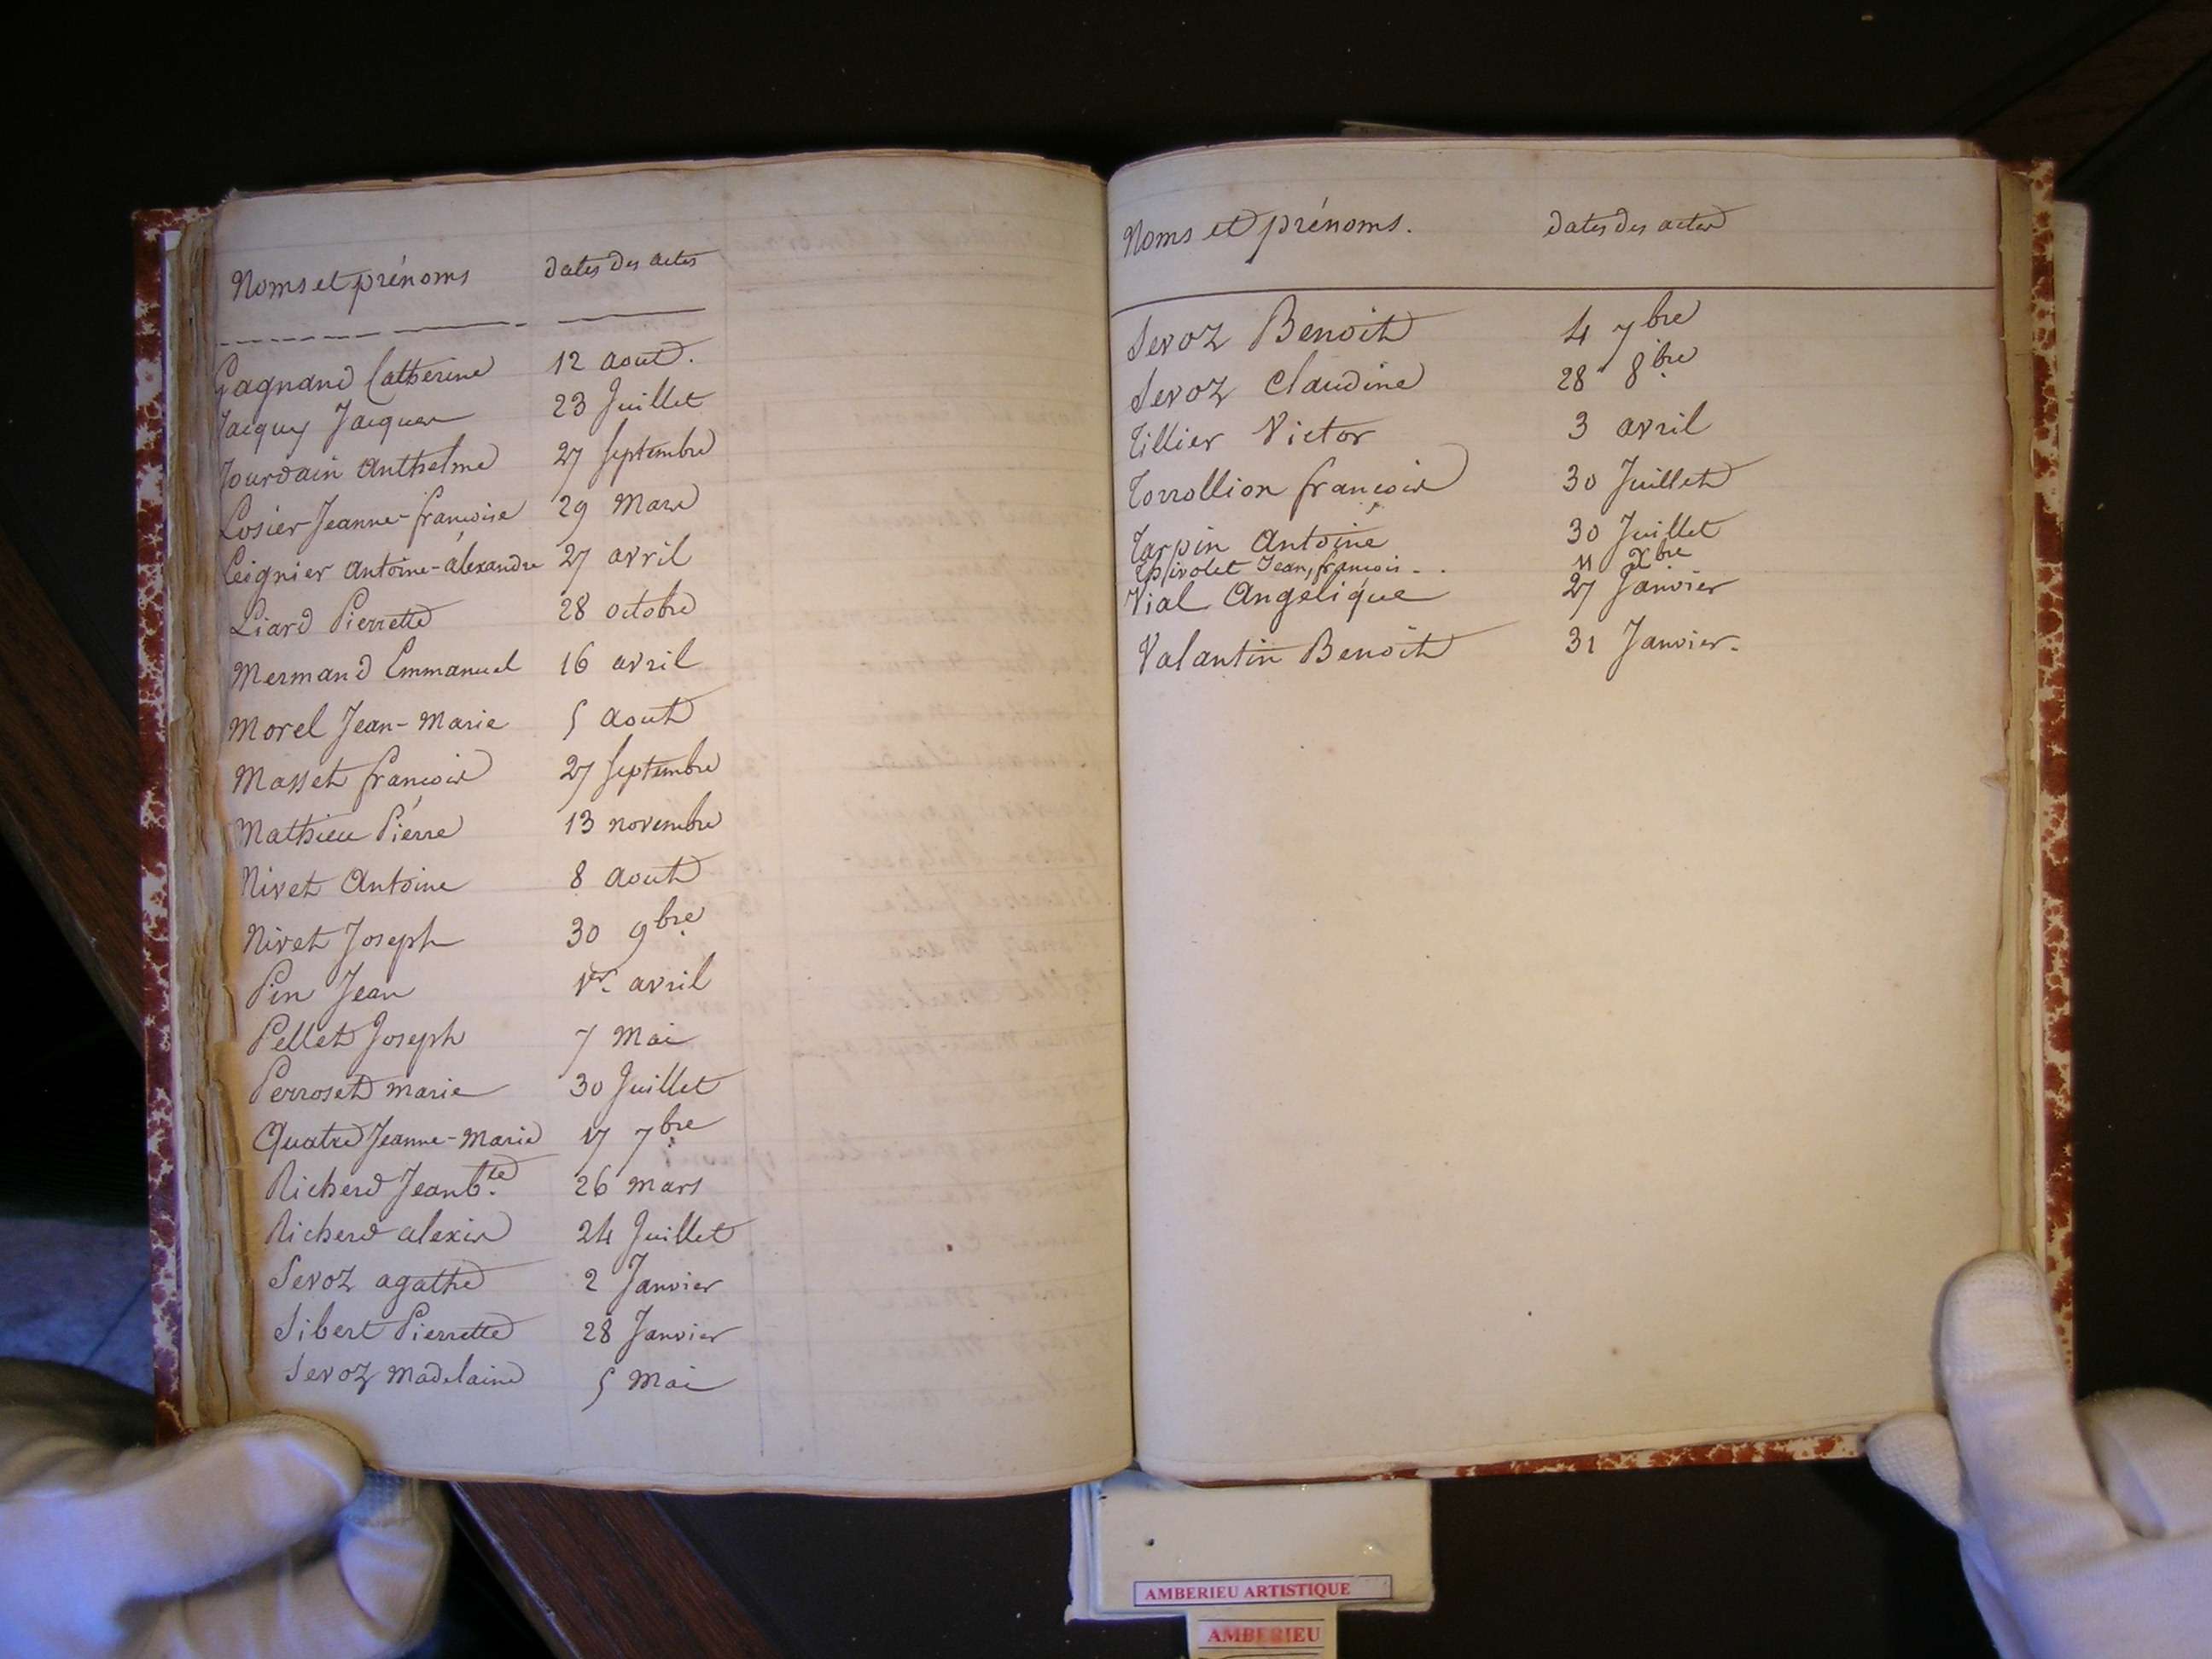 Noms et prénoms dates des actes
Gagnand Catherine 12 aout.
Jacquy Jacques 23 Juillet
Jourdain Anthelme 27 septembre
Losier Jeanne-françoise 29 Mars
Leignier Antoine-alexandre 27 avril
Liard Pierrette 28 octobre
Mermand Emmanuel 16 avril
Morel Jean-Marie 5 aout
Masset françois 27 septembre
Mathieu Pierre 13 novembre
Nivet Antoine 8 aout
Nivet Joseph 30 9bre
Pin Jean 1er avril
Pellet Joseph 7 Mai
Perroset marie 30 Juillet
Quatre Jeanne-Marie 17 7bre
Richerd Jean bte 26 mars
Richerd alexis 24 Juillet
Sevoz agathe 2 Janvier
Sibert Pierrette 28 Janvier
Sevoz Madelaine 5 Mai
Noms et prénoms. dates des actes
Sevoz Benoit 4 7bre
Sevoz Claudine 28 8bre
Tillier Victor 3 avril
Torrollion françois 30 Juillet
Tarpin Antoine 30 Juillet
Thivolet Jean, françois - . 11 Xbre
Vial Angélique 27 Janvier
Valantin Benoit 31 Janvier -
AMBERIEU ARTISTIQUE
AMBERIEU